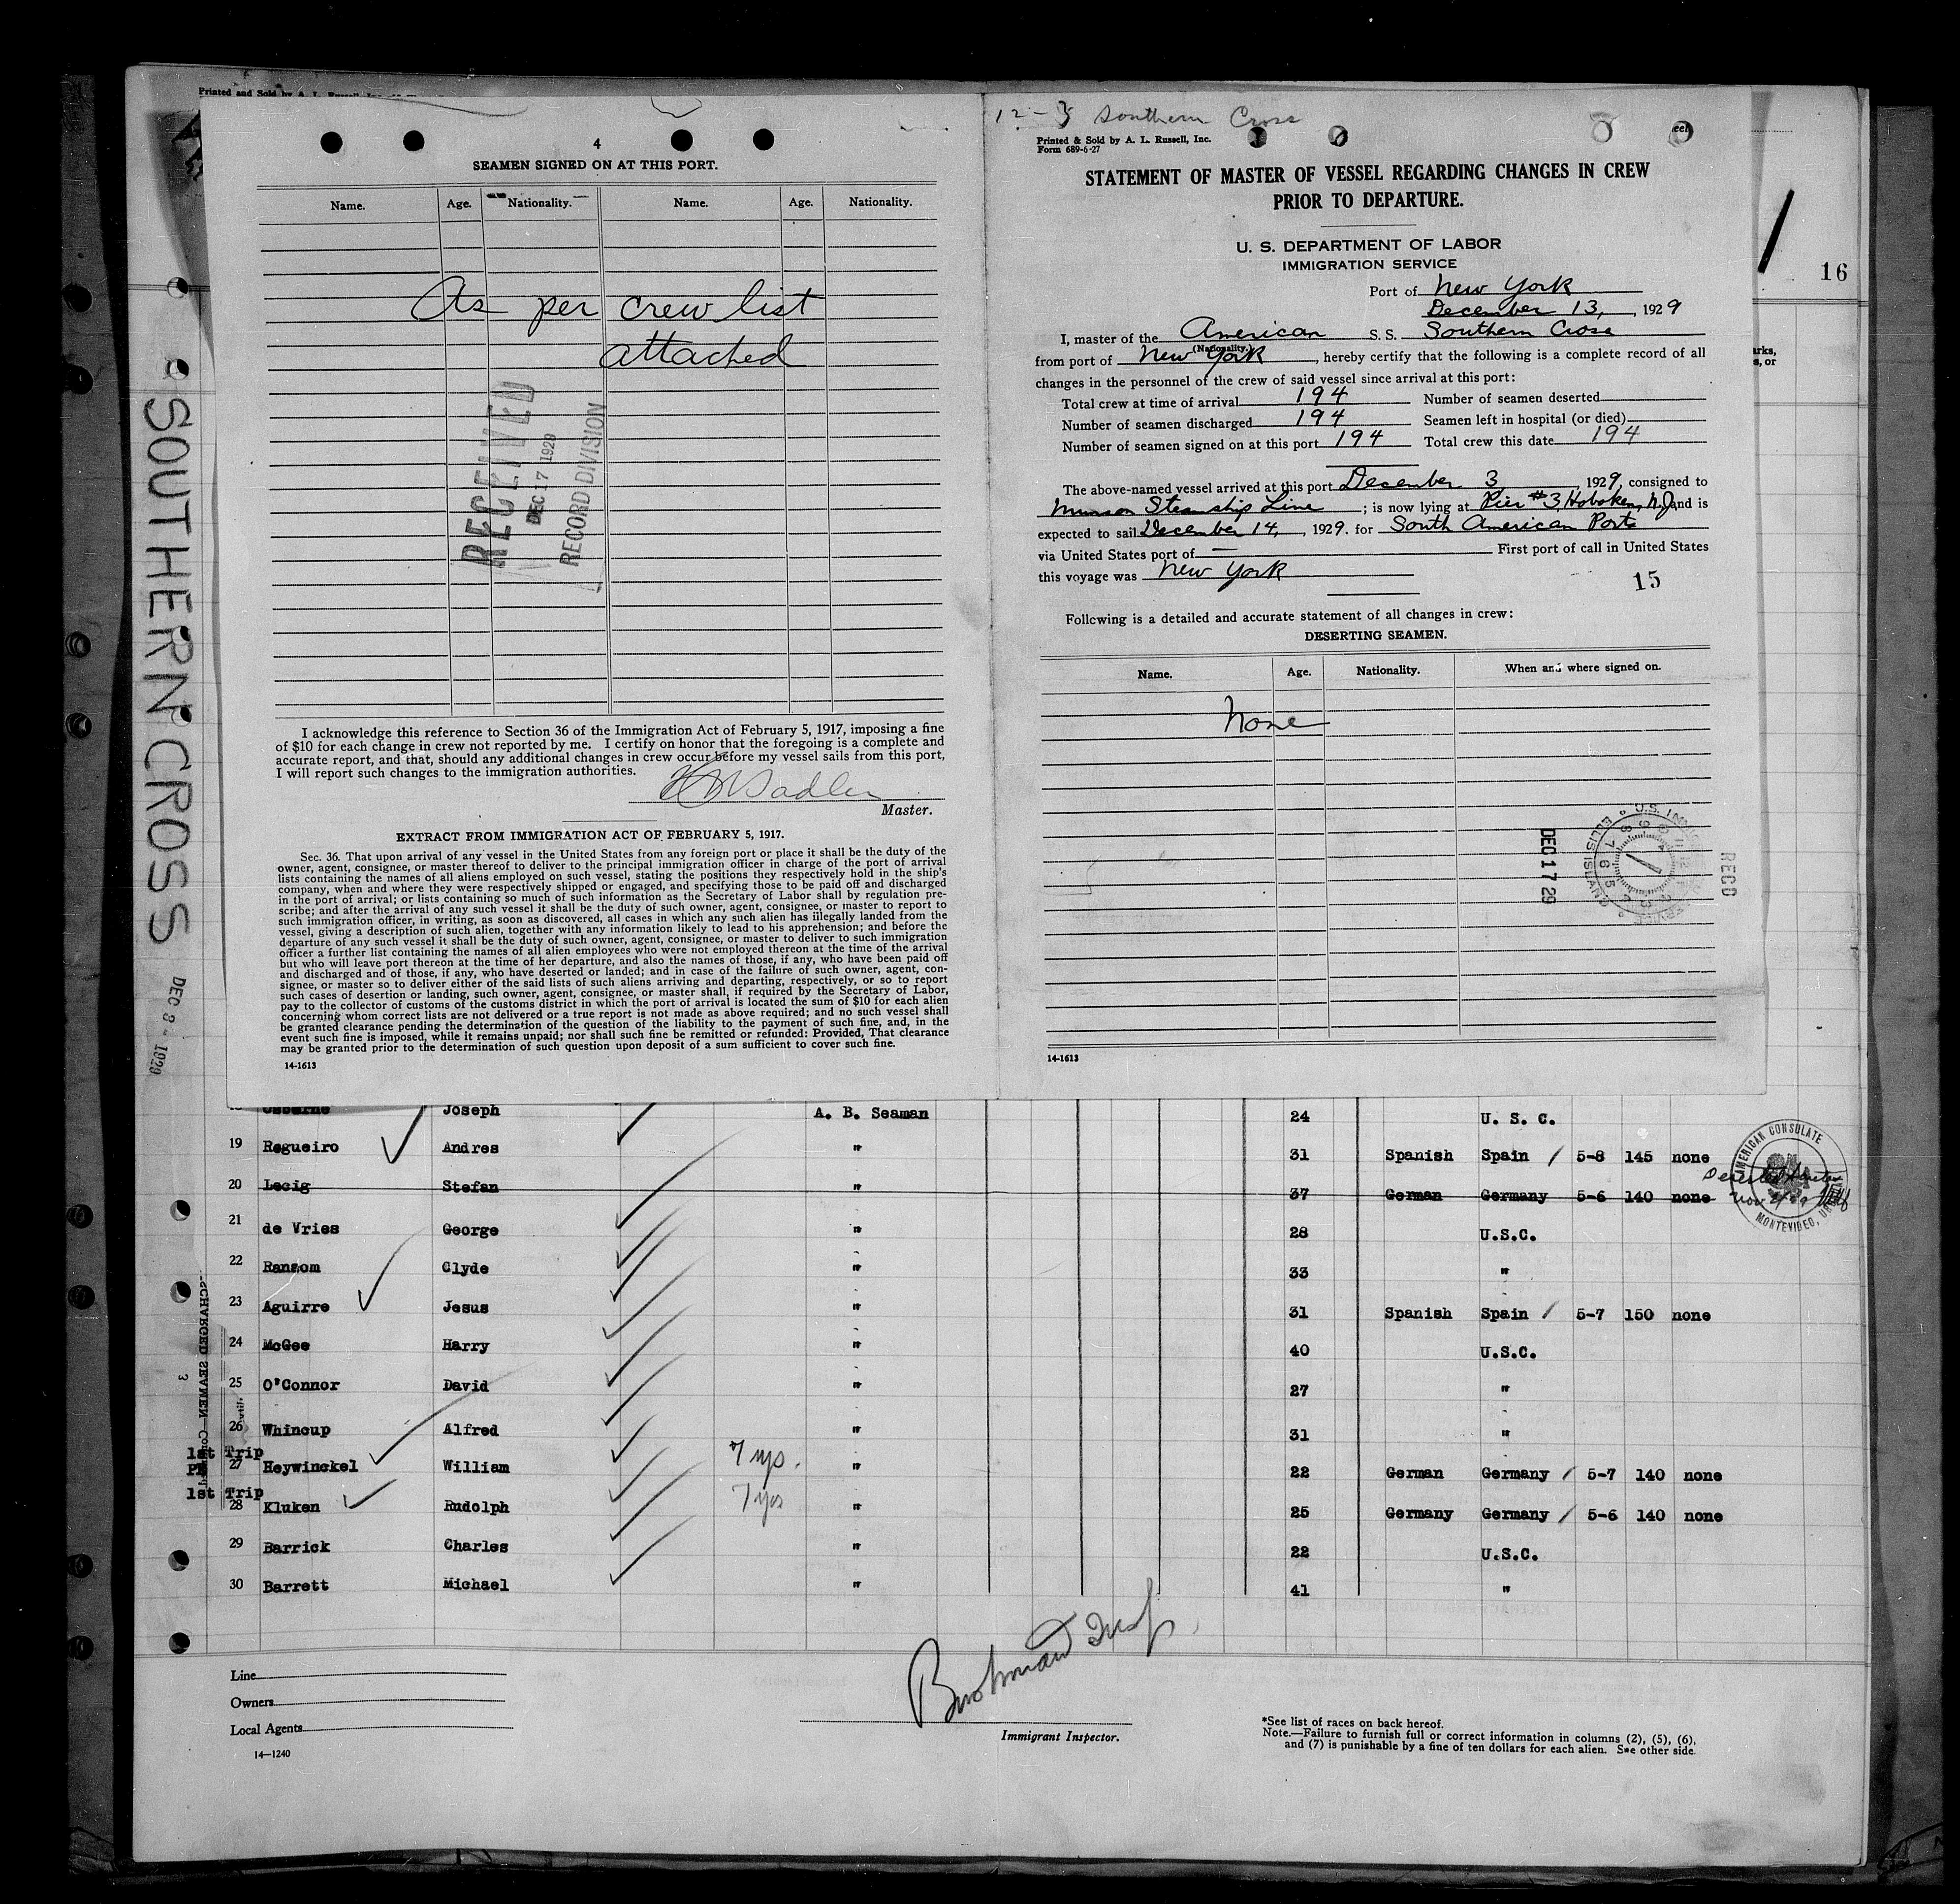 Printed and Sold by A. L. Russell, Inc.
4
SEAMEN SIGNED ON AT THIS PORT.
Name. Age. Nationality. Name. Age. Nationality.
As per crew list
attached
RECEIVED
DEC 17 1929
RECORD DIVISION
I acknowledge this reference to Section 36 of the Immigration Act of February 5, 1917, imposing a fine
of $10 for each change in crew not reported by me. I certify on honor that the foregoing is a complete and
accurate report, and that, should any additional changes in crew occur before my vessel sails from this port,
I will report such changes to the immigration authorities.
Sadler
Master.
EXTRACT FROM IMMIGRATION ACT OF FEBRUARY 5, 1917.
Sec. 36. That upon arrival of any vessel in the United States from any foreign port or place it shall be the duty of the
owner, agent, consignee, or master thereof to deliver to the principal immigration officer in charge of the port of arrival
lists containing the names of all aliens employed on such vessel, stating the positions they respectively hold in the ship's
company, when and where they were respectively shipped or engaged, and specifying those to be paid off and discharged
in the port of arrival; or lists containing so much of such information as the Secretary of Labor shall by regulation pre-
scribe; and after the arrival of any such vessel it shall be the duty of such owner, agent, consignee, or master to report to
such immigration officer, in writing, as soon as discovered, all cases in which any such alien has illegally landed from the
vessel, giving a description of such alien, together with any information likely to lead to his apprehension; and before the
departure of any such vessel it shall be the duty of such owner, agent, consignee, or master to deliver to such immigration
officer a further list containing the names of all alien employees who were not employed thereon at the time of the arrival
but who will leave port thereon at the time of her departure, and also the names of those, if any, who have been paid off
and discharged and of those, if any, who have deserted or landed; and in case of the failure of such owner, agent, con-
signee, or master so to deliver either of the said lists of such aliens arriving and departing, respectively, or so to report
such cases of desertion or landing, such owner, agent, consignee, or master shall, if required by the Secretary of Labor,
pay to the collector of customs of the customs district in which the port of arrival is located the sum of $10 for each alien
concerning whom correct lists are not delivered or a true report is not made as above required; and no such vessel shall
be granted clearance pending the determination of the question of the liability to the payment of such fine, and, in the
event such fine is imposed, while it remains unpaid; nor shall such fine be remitted or refunded: Provided, That clearance
may be granted prior to the determination of such question upon deposit of a sum sufficient to cover such fine.
14-1613
12-3 Southern Cross
Printed & Sold by A. L. Russell, Inc.
Form 689-6-27
STATEMENT OF MASTER OF VESSEL REGARDING CHANGES IN CREW
PRIOR TO DEPARTURE.
U. S. DEPARTMENT OF LABOR
IMMIGRATION SERVICE
Port of New York
December 13, , 1929
I, master of the American S. S. Southern Cross
(Nationality.)
from port of New York , hereby certify that the following is a complete record of all
changes in the personnel of the crew of said vessel since arrival at this port:
Total crew at time of arrival 194 Number of seamen deserted
Number of seamen discharged 194 Seamen left in hospital (or died)
Number of seamen signed on at this port 194 Total crew this date 194
The above-named vessel arrived at this port December 3 , 1929, consigned to
Munson Steamship Line ; is now lying at Pier #3, Hoboken, N.J. and is
expected to sail December 14, , 1929. for South American Ports
via United States port of — First port of call in United States
this voyage was New York
15
Following is a detailed and accurate statement of all changes in crew:
DESERTING SEAMEN.
Name. Age. Nationality. When and where signed on.
None
DEC 17 29
RECD
14-1613
16
SOUTHERN CROSS
DEC 3 - 1929
Osborne Joseph A. B. Seaman 24 U. S. C.
19 Regueiro Andres " 31 Spanish Spain 5-8 145 none
20 Lecig Stefan " 37 German Germany 5-6 140 none
AMERICAN CONSULATE
MONTEVIDEO,
21 de Vries George " 28 U.S.C.
22 Ransom Clyde " 33 "
23 Aguirre Jesus " 31 Spanish Spain 5-7 150 none
24 McGee Harry " 40 U.S.C.
25 O'Connor David " 27 "
26 Whincup Alfred " 31 "
1st Trip
27 Heywinckel William 7 yrs. " 22 German Germany 5-7 140 none
1st Trip
28 Kluken Rudolph 7 yrs " 25 Germany Germany 5-6 140 none
29 Barrick Charles " 22 U.S.C.
30 Barrett Michael " 41 "
Line
Owners
Local Agents
14-1240
Immigrant Inspector.
*See list of races on back hereof.
Note.—Failure to furnish full or correct information in columns (2), (5), (6),
and (7) is punishable by a fine of ten dollars for each alien. See other side.